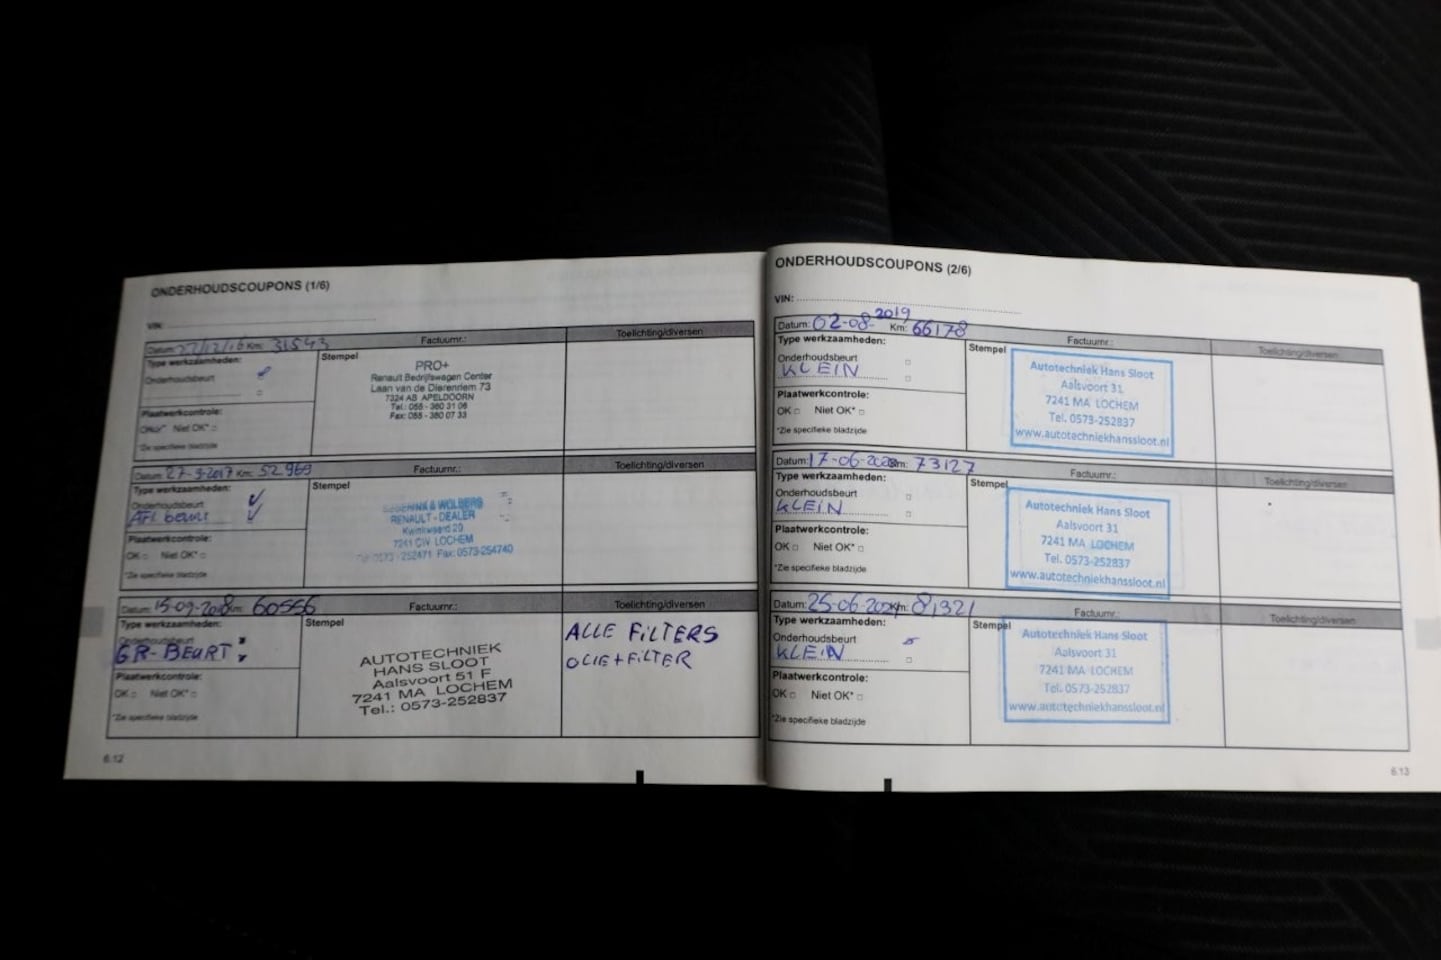 ONDERHOUDSCOUPONS (1/6)
VIN:
Datum: 27/12/16 Km: 31543
Factuurnr.:
Toelichting/diversen
Type werkzaamheden:
Onderhoudsbeurt
Plaatwerkcontrole:
OK Niet OK*
*Zie specifieke bladzijde
Stempel
PRO+
Renault Bedrijfswagen Center
Laan van de Dierenriem 73
7324 AB APELDOORN
Tel.: 055 - 360 31 06
Fax: 055 - 360 07 33
Datum: 27-3-2017 Km: 52969
Factuurnr.:
Toelichting/diversen
Type werkzaamheden:
Onderhoudsbeurt
AFL beurt
Plaatwerkcontrole:
OK Niet OK*
*Zie specifieke bladzijde
Stempel
& WOLBERG
RENAULT - DEALER
Kwinkweerd 20
7241 CW LOCHEM
Tel: 0573 - 252471 Fax: 0573-254740
Datum: 15-09-2018 Km: 60556
Factuurnr.:
Toelichting/diversen
Type werkzaamheden:
Onderhoudsbeurt
GR-BEURT
Plaatwerkcontrole:
OK Niet OK*
*Zie specifieke bladzijde
Stempel
AUTOTECHNIEK
HANS SLOOT
Aalsvoort 51 F
7241 MA LOCHEM
Tel.: 0573-252837
ALLE FILTERS
OLIE+FILTER
6.12
ONDERHOUDSCOUPONS (2/6)
VIN:
Datum: 02-08-2019 Km: 66178
Factuurnr.:
Toelichting/diversen
Type werkzaamheden:
Onderhoudsbeurt
KLEIN
Plaatwerkcontrole:
OK Niet OK*
*Zie specifieke bladzijde
Stempel
Autotechniek Hans Sloot
Aalsvoort 31
7241 MA LOCHEM
Tel. 0573-252837
www.autotechniekhanssloot.nl
Datum: 17-06-2020 Km: 73127
Factuurnr.:
Toelichting/diversen
Type werkzaamheden:
Onderhoudsbeurt
KLEIN
Plaatwerkcontrole:
OK Niet OK*
*Zie specifieke bladzijde
Stempel
Autotechniek Hans Sloot
Aalsvoort 31
7241 MA LOCHEM
Tel. 0573-252837
www.autotechniekhanssloot.nl
Datum: 25-06-2021 Km: 81321
Factuurnr.:
Toelichting/diversen
Type werkzaamheden:
Onderhoudsbeurt
KLEIN
Plaatwerkcontrole:
OK Niet OK*
*Zie specifieke bladzijde
Stempel
Autotechniek Hans Sloot
Aalsvoort 31
7241 MA LOCHEM
Tel. 0573-252837
www.autotechniekhanssloot.nl
6.13